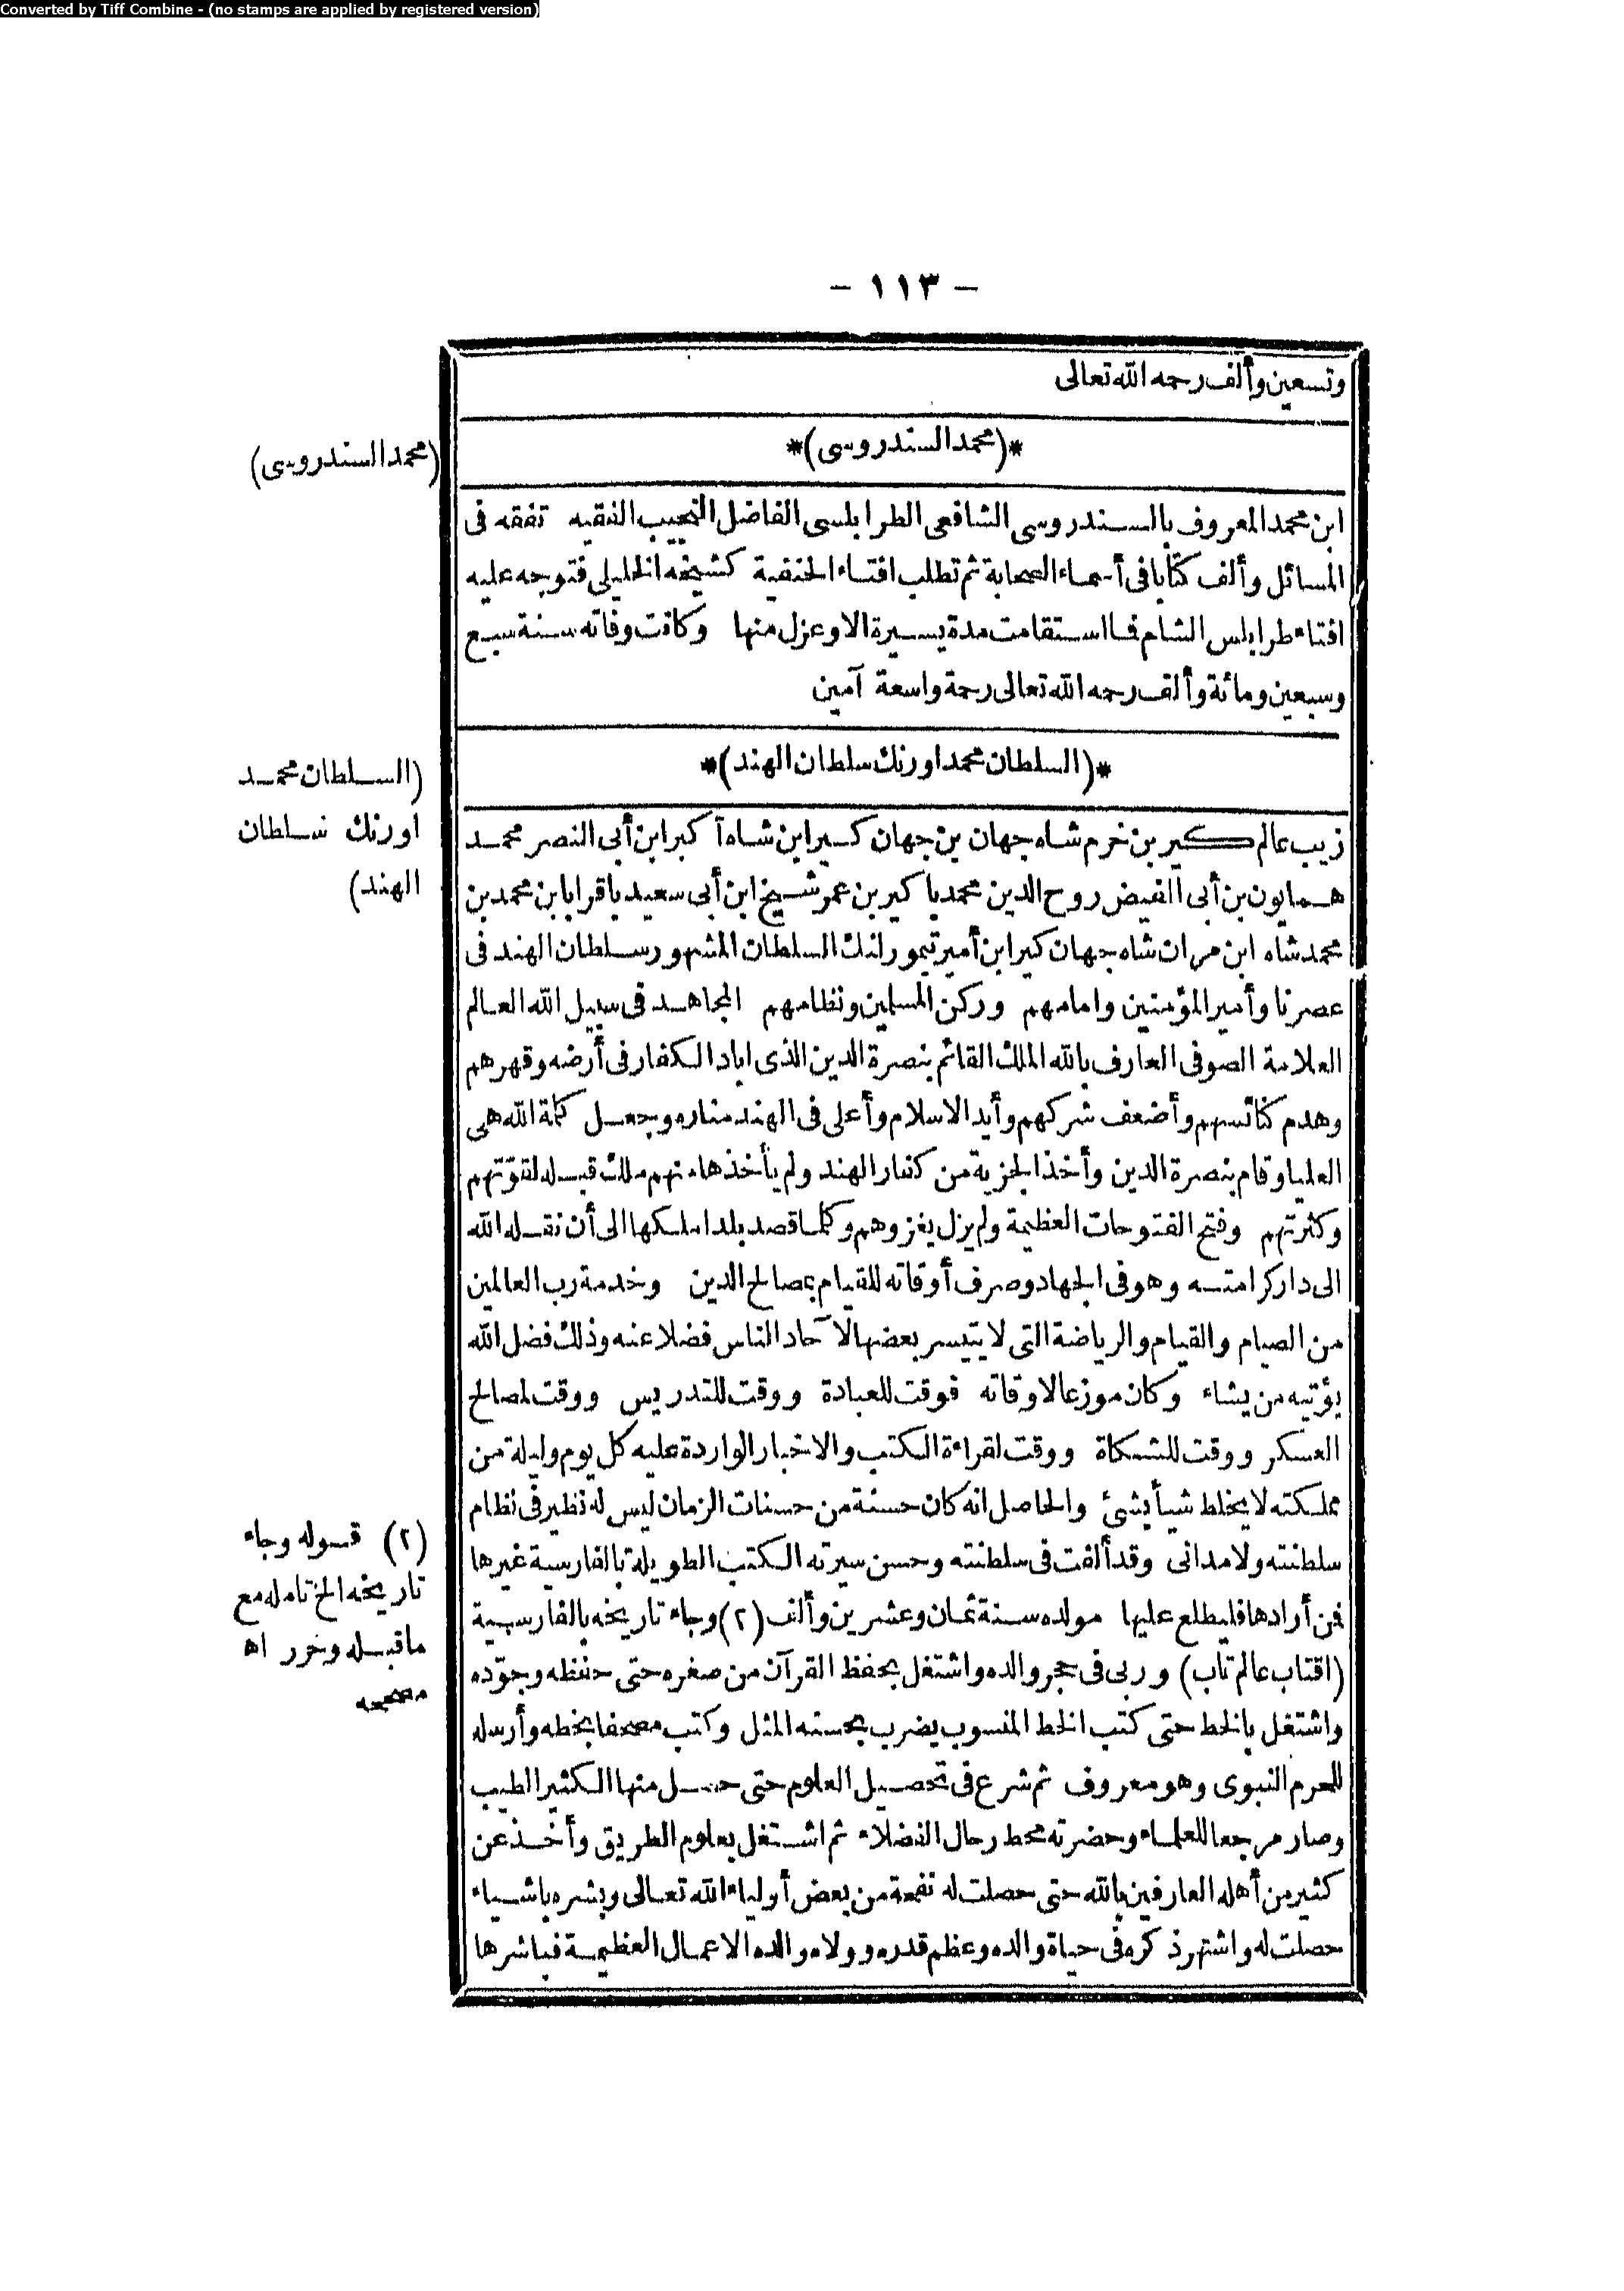 Converted by Tiff Combine - (no stamps are applied by registered version)
- ١١٣ -
وتسعين وألف رحمه الله تعالى
*(محمد السندروسى)*
(محمد السندروسى)
ابن محمد المعروف بالسندروسى الشافعى الطرابلسى الفاضل النجيب الفقيه تفقه فى
المسائل وألف كتابا فى أسماء الصحابة ثم تطلب افتاء الحنفية كشيخه الخليلى فتوجه عليه
افتاء طرابلس الشام فما استقامت مدة يسيرة الا وعزل منها وكانت وفاته سنة سبع
وسبعين ومائة وألف رحمه الله تعالى رحمة واسعة آمين
*(السلطان محمد اورنك سلطان الهند)*
(السلطان محمد
اورنك سلطان
الهند)
زيب عالم كبير بن خرم شاه جهان بن جهان كبير ابن شاه آكبر ابن أبى النصر محمد
همايون بن أبى الفيض روح الدين محمد باكير بن عمر شيخ ابن أبى سعيد باقرا بابن محمد بن
محمد شاه ابن مران شاه جهان كير ابن أمير تيمور لنك السلطان المشهور سلطان الهند فى
عصرنا وأمير المؤمنين وامامهم وركن المسلمين ونظامهم المجاهد فى سبيل الله العالم
العلامة الصوفى العارف بالله الملك القائم بنصرة الدين الذى اباد الكفار فى أرضه وقهرهم
وهدم كنائسهم وأضعف شركهم وأيد الاسلام وأعلى فى الهند مناره وجعل كلمة الله هى
العليا وقام بنصرة الدين وأخذ الجزية من كفار الهند ولم يأخذها منهم ملك قبله لقوّتهم
وكثرتهم وفتح الفتوحات العظيمة ولم يزل يغزوهم وكلما قصد بلدا ملكها الى أن نقله الله
الى دار كرامته وهو فى الجهاد وصرف أوقاته للقيام بمصالح الدين وخدمة رب العالمين
من الصيام والقيام والرياضة التى لا يتيسر بعضها لا آحاد الناس فضلا عنه وذلك فضل الله
يؤتيه من يشاء وكان موزعا لاوقاته فوقت للعبادة ووقت للتدريس ووقت لمصالح
العسكر ووقت للشكاة ووقت لقراءة الكتب والاخبار الواردة عليه كل يوم وليلة من
مملكته لا يخلط شيأ بشئ والحاصل انه كان حسنة من حسنات الزمان ليس له نظير فى نظام
سلطنته ولا مدانى وقد ألفت فى سلطنته وحسن سيرته الكتب الطويلة بالفارسية غيرها
فمن أرادها فليطلع عليها مولده سنة ثمان وعشرين وألف (٢) وجاء تاريخه بالفارسية
(٢) قوله وجاء
تاريخه الخ تامله مع
ما قبله وحرر اه
مصححه
(اقتاب عالم تاب) وربى فى حجر والده واشتغل بحفظ القرآن من صغره حتى حفظه وجوّده
واشتغل بالخط حتى كتب الخط المنسوب يضرب بحسنه المثل وكتب مصحفا بخطه وأرسله
للحرم النبوى وهو معروف ثم شرع فى تحصيل العلوم حتى حصل منها الكثير الطيب
وصار مرجعا للعلماء وحضرته محط رحال الفضلاء ثم اشتغل بعلوم الطريق وأخذ عن
كثير من أهله العارفين بالله حتى حصلت له نفحة من بعض أولياء الله تعالى وبشره باشياء
حصلت له واشتهر ذكره فى حياة والده وعظم قدره وولاه والده الاعمال العظيمة فباشرها